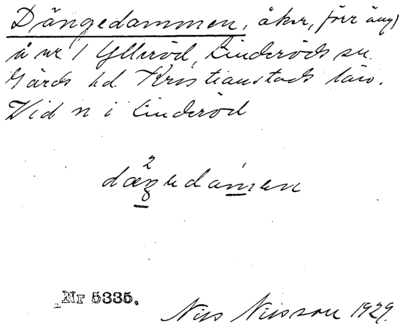 Dängedammen, åker, förr äng
å nr 1 Ylleröd, Linderöds sn.
Gärds hd. Kristianstads län.
Vid n i Linderöd
2
dæŋedamen
Nr 5335.
Nils Nilsson 1929.